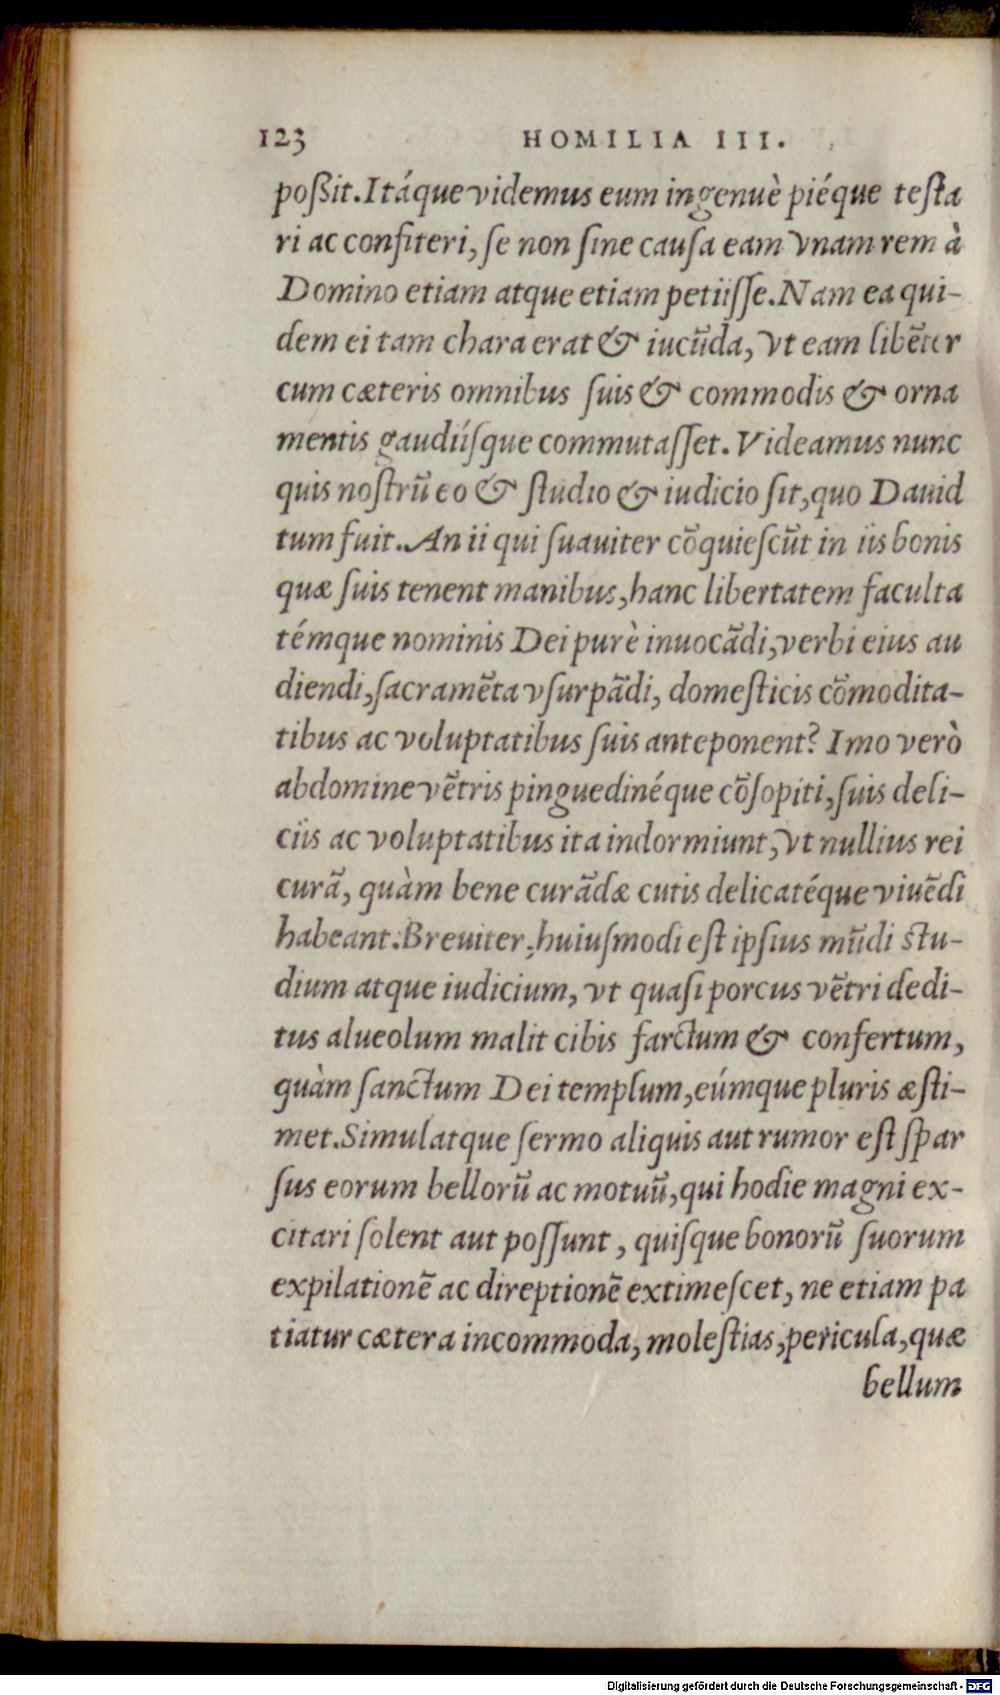 123 HOMILIA III.
poßit. Itáque videmus eum ingenuè piéque testa
ri ac confiteri, se non sine causa eam vnam rem à
Domino etiam atque etiam petiisse. Nam ea qui-
dem ei tam chara erat & iucūda, vt eam libēter
cum cæteris omnibus suis & commodis & orna
mentis gaudiísque commutasset. Videamus nunc
quis nostrū eo & studio & iudicio sit, quo Dauid
tum fuit. An ii qui suauiter cōquiescūt in iis bonis
quæ suis tenent manibus, hanc libertatem faculta
témque nominis Dei purè inuocādi, verbi eius au
diendi, sacramēta vsurpādi, domesticis cōmodita-
tibus ac voluptatibus suis anteponent? Imo verò
abdomine vētris pinguedinéque cōsopiti, suis deli-
ciis ac voluptatibus ita indormiunt, vt nullius rei
curā, quàm bene curādæ cutis delicatéque viuēdi
habeant. Breuiter, huiusmodi est ipsius mūdi stu-
dium atque iudicium, vt quasi porcus vētri dedi-
tus alueolum malit cibis farctum & confertum,
quàm sanctum Dei templum, eúmque pluris æsti-
met. Simulatque sermo aliquis aut rumor est spar
sus eorum bellorū ac motuū, qui hodie magni ex-
citari solent aut possunt, quisque bonorū suorum
expilationē ac direptionē extimescet, ne etiam pa
tiatur cætera incommoda, molestias, pericula, quæ
bellum
Digitalisierung gefördert durch die Deutsche Forschungsgemeinschaft - DFG